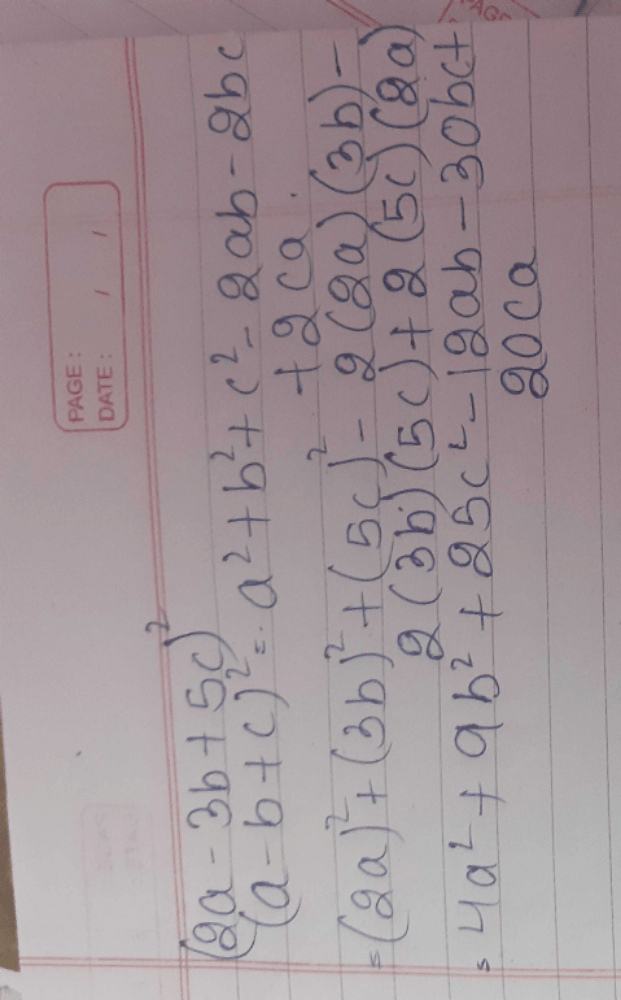 PAGE :
DATE : / /
(2a - 3b + 5c)²
(a - b + c)² = a² + b² + c² - 2ab - 2bc
+ 2ca
= (2a)² + (3b)² + (5c)² - 2(2a)(3b) -
2(3b)(5c) + 2(5c)(2a)
= 4a² + 9b² + 25c² - 12ab - 30bc +
20ca